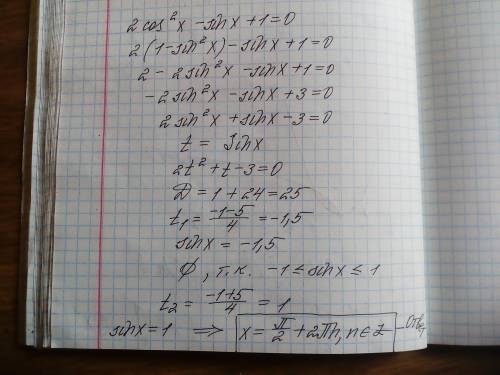 2cos²x - sinx + 1 = 0
2(1 - sin²x) - sinx + 1 = 0
2 - 2sin²x - sinx + 1 = 0
-2sin²x - sinx + 3 = 0
2sin²x + sinx - 3 = 0
t = sinx
2t² + t - 3 = 0
D = 1 + 24 = 25
t₁ = (-1-5)/4 = -1,5
sinx = -1,5
∅, т.к. -1 ≤ sinx ≤ 1
t₂ = (-1+5)/4 = 1
sinx = 1 ⇒ x = π/2 + 2πn, n ∈ Z - Ответ